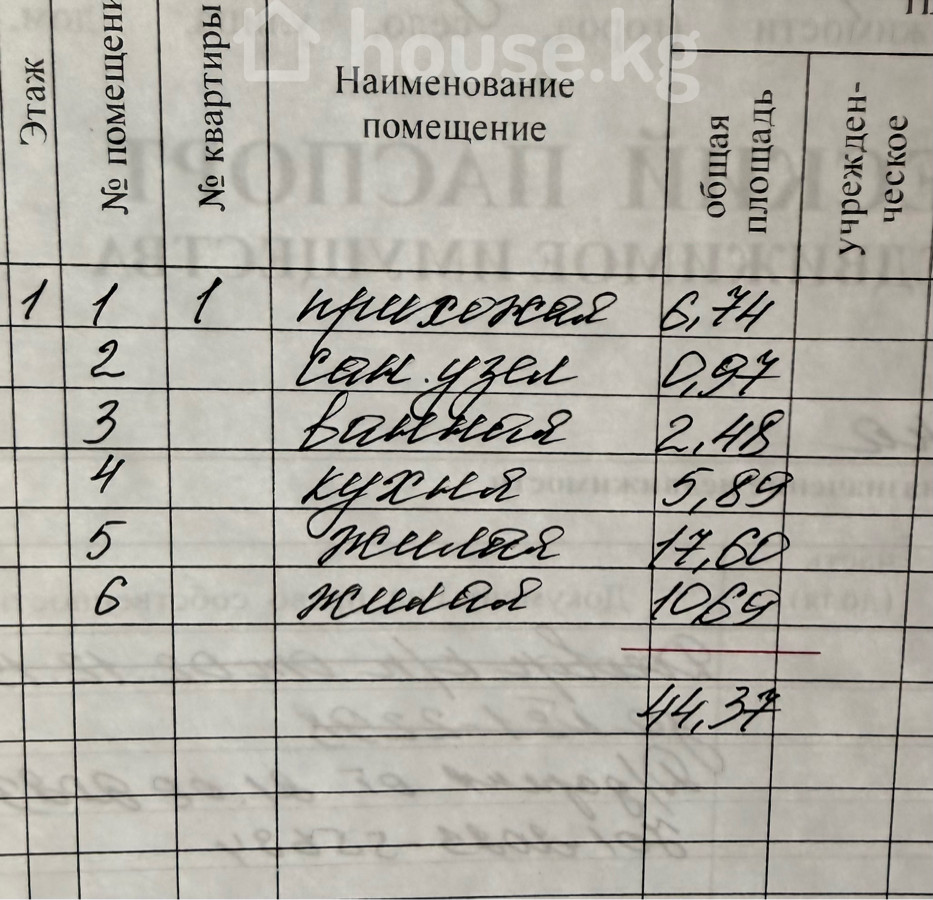 house.kg
Этаж
№ помещени
№ квартиры
Наименование
помещение
общая
площадь
учрежден-
ческое
1 1 1 прихожая 6,74
2 сан.узел 0,97
3 ванная 2,48
4 кухня 5,89
5 жилая 17,60
6 жилая 10,69
44,37